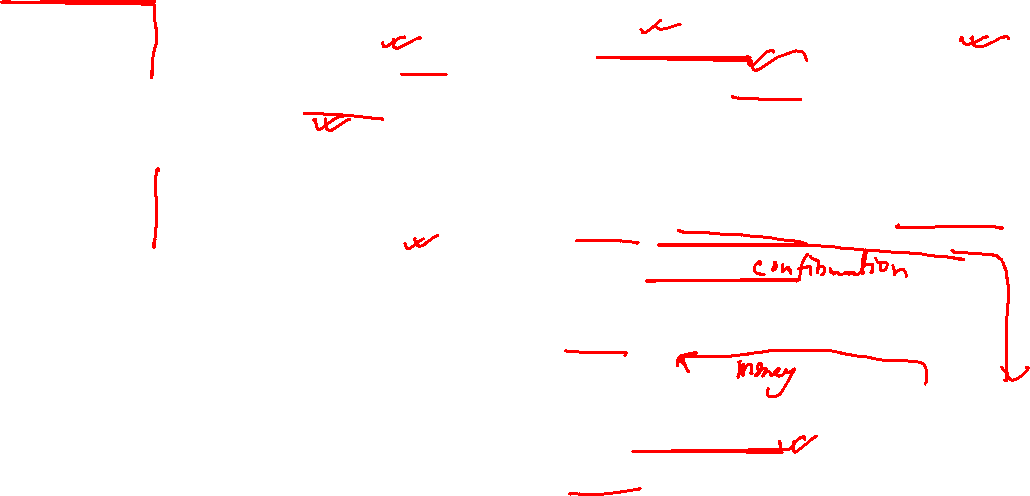 confirmation
money